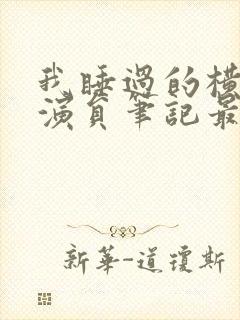 我睡過的橫
演員筆記最
新華-道瓊斯